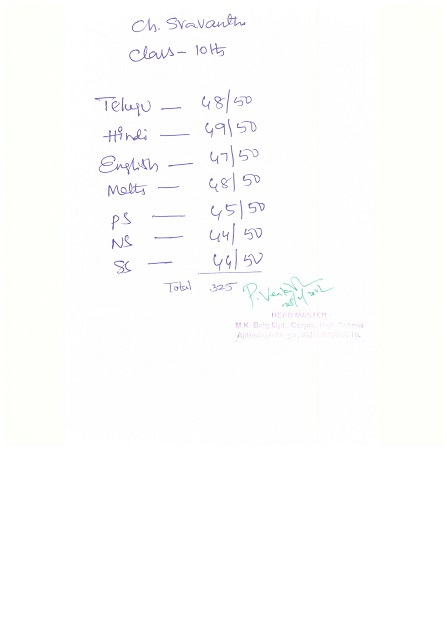 Ch. Sravanthi
Class - 10th
Telugu — 48/50
Hindi — 49/50
English — 47/50
Maths — 48/50
PS — 45/50
NS — 44/50
SS — 44/50
Total 325
HEAD MASTER
M.K. Baig